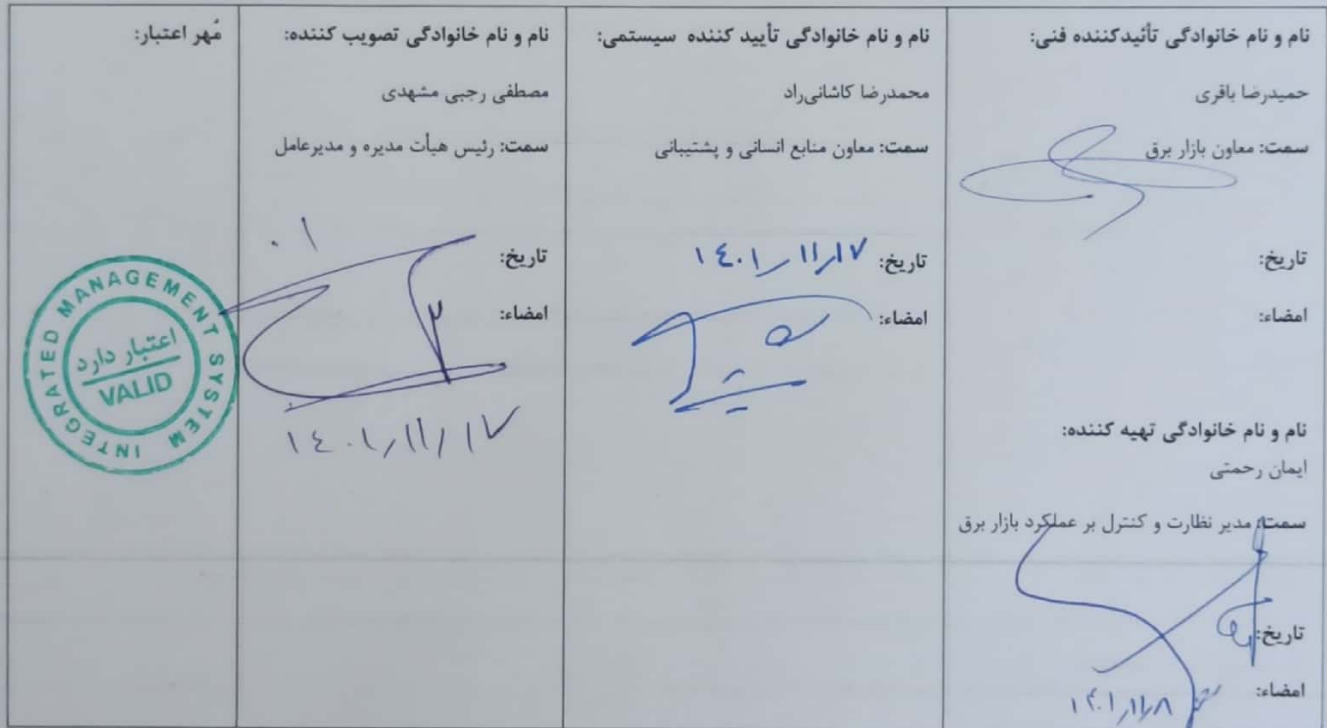 نام و نام خانوادگی تأئیدکننده فنی:
حمیدرضا باقری
سمت: معاون بازار برق
تاریخ:
امضاء:
نام و نام خانوادگی تهیه کننده:
ایمان رحمتی
سمت: مدیر نظارت و کنترل بر عملکرد بازار برق
تاریخ:
امضاء:
۱۴۰۱/۱۱/۸
نام و نام خانوادگی تأیید کننده سیستمی:
محمدرضا کاشانی‌راد
سمت: معاون منابع انسانی و پشتیبانی
تاریخ: ۱۴۰۱/۱۱/۱۷
امضاء:
نام و نام خانوادگی تصویب کننده:
مصطفی رجبی مشهدی
سمت: رئیس هیأت مدیره و مدیرعامل
تاریخ:
امضاء:
۱۴۰۱/۱۱/۱۷
مُهر اعتبار:
INTEGRATED MANAGEMENT SYSTEM
اعتبار دارد
VALID